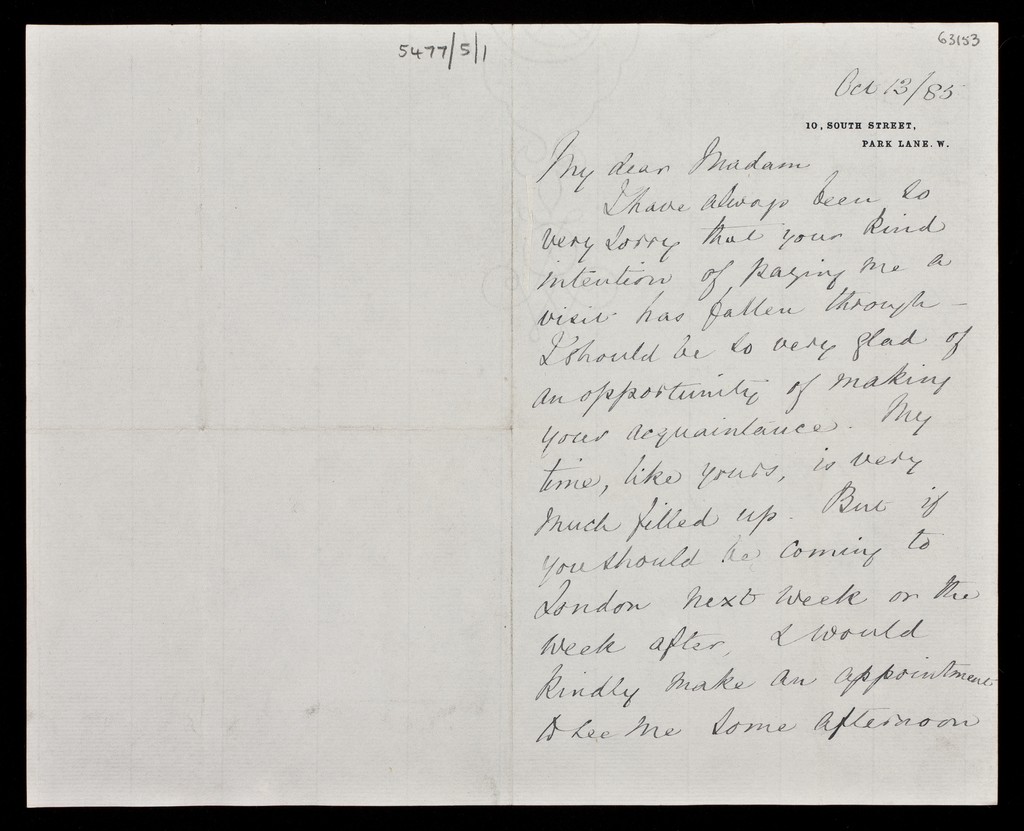 5477/5/1
63153
Oct 13/85
10, SOUTH STREET,
PARK LANE. W.
My dear Madam
I have always been so
very sorry that your kind
intention of paying me a
visit has fallen through –
I should be so very glad of
an opportunity of making
your acquaintance. My
time, like yours, is very
much filled up. But if
you should be coming to
London next week or the
week after, & would
kindly make an appointment
to see me some afternoon